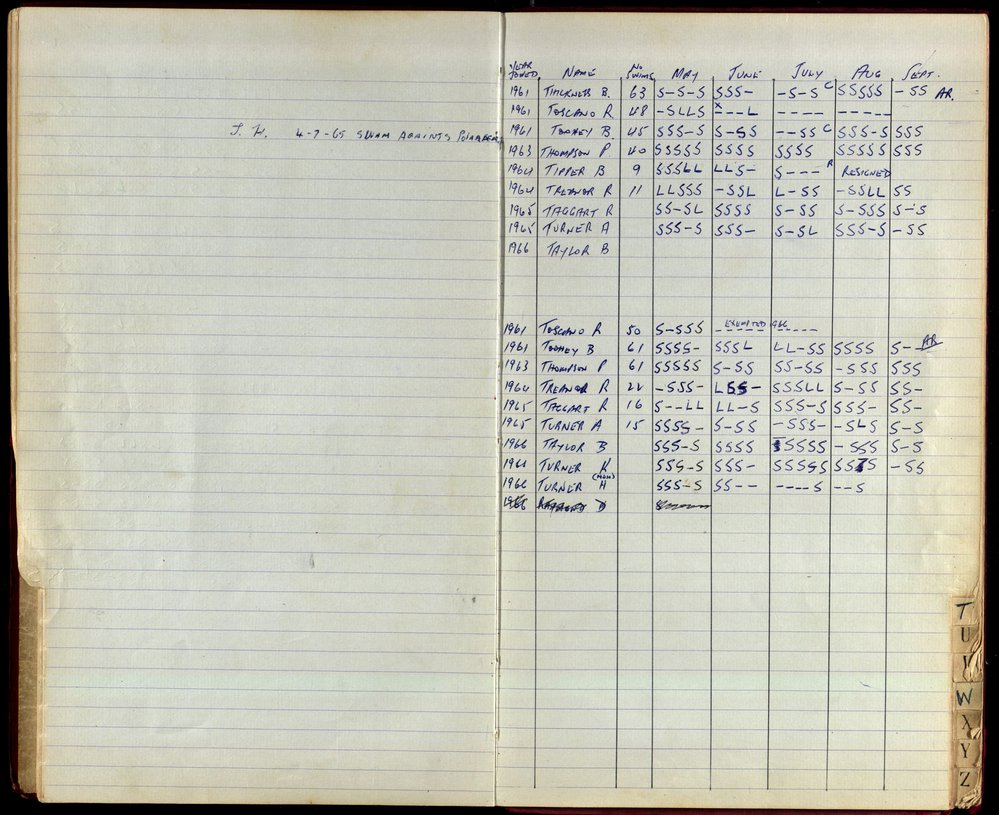 J. H. 4-7-65 SWAM AGAINTS POLARBEARS
YEAR JOINED NAME No SWIMS MAY JUNE JULY AUG SEPT.
1961 THICKNESS B. 63 S-S-S SSS- --S-S C SSSSS -SS AR.
1961 TOSCANO R 48 -SLLS X---L ---- -----
1961 TOOHEY B. 45 SSS-S S-SS --SS C SSS-S SSS
1963 THOMPSON P. 40 SSSSS SSSS SSSS SSSSS SSS
1964 TIPPER B 9 SSSLL LLS- S--- R RESIGNED
1964 TREANOR R 11 LLSSS -SSL L-SS -SSLL SS
1965 TAGGART R SS-SL SSSS S-SS S-SSS S-S
1965 TURNER A SSS-S SSS- S-SL SSS-S -SS
1966 TAYLOR B
1961 TOSCANO R 50 S-SSS EXEMPTED
1961 TOOHEY B 61 SSSS- SSSL LL-SS SSSS S-- AR
1963 THOMPSON P 61 SSSSS S-SS SS-SS -SSS SSS
1964 TREANOR R 22 -SSS- LSS- SSSLL S-SS SS-
1965 TAGGART R 16 S--LL LL-S SSS-S SSS- SS-
1965 TURNER A 15 SSSS- S-SS -SSS- -SLS S-S
1966 TAYLOR B SSS-S SSSS SSSSS -SSS S-S
1966 TURNER K SSS-S SSS- SSSSS SS7S -SS
1966 TURNER H (MON) SSS-S SS-- ----S --S
T
U
W
X
Y
Z